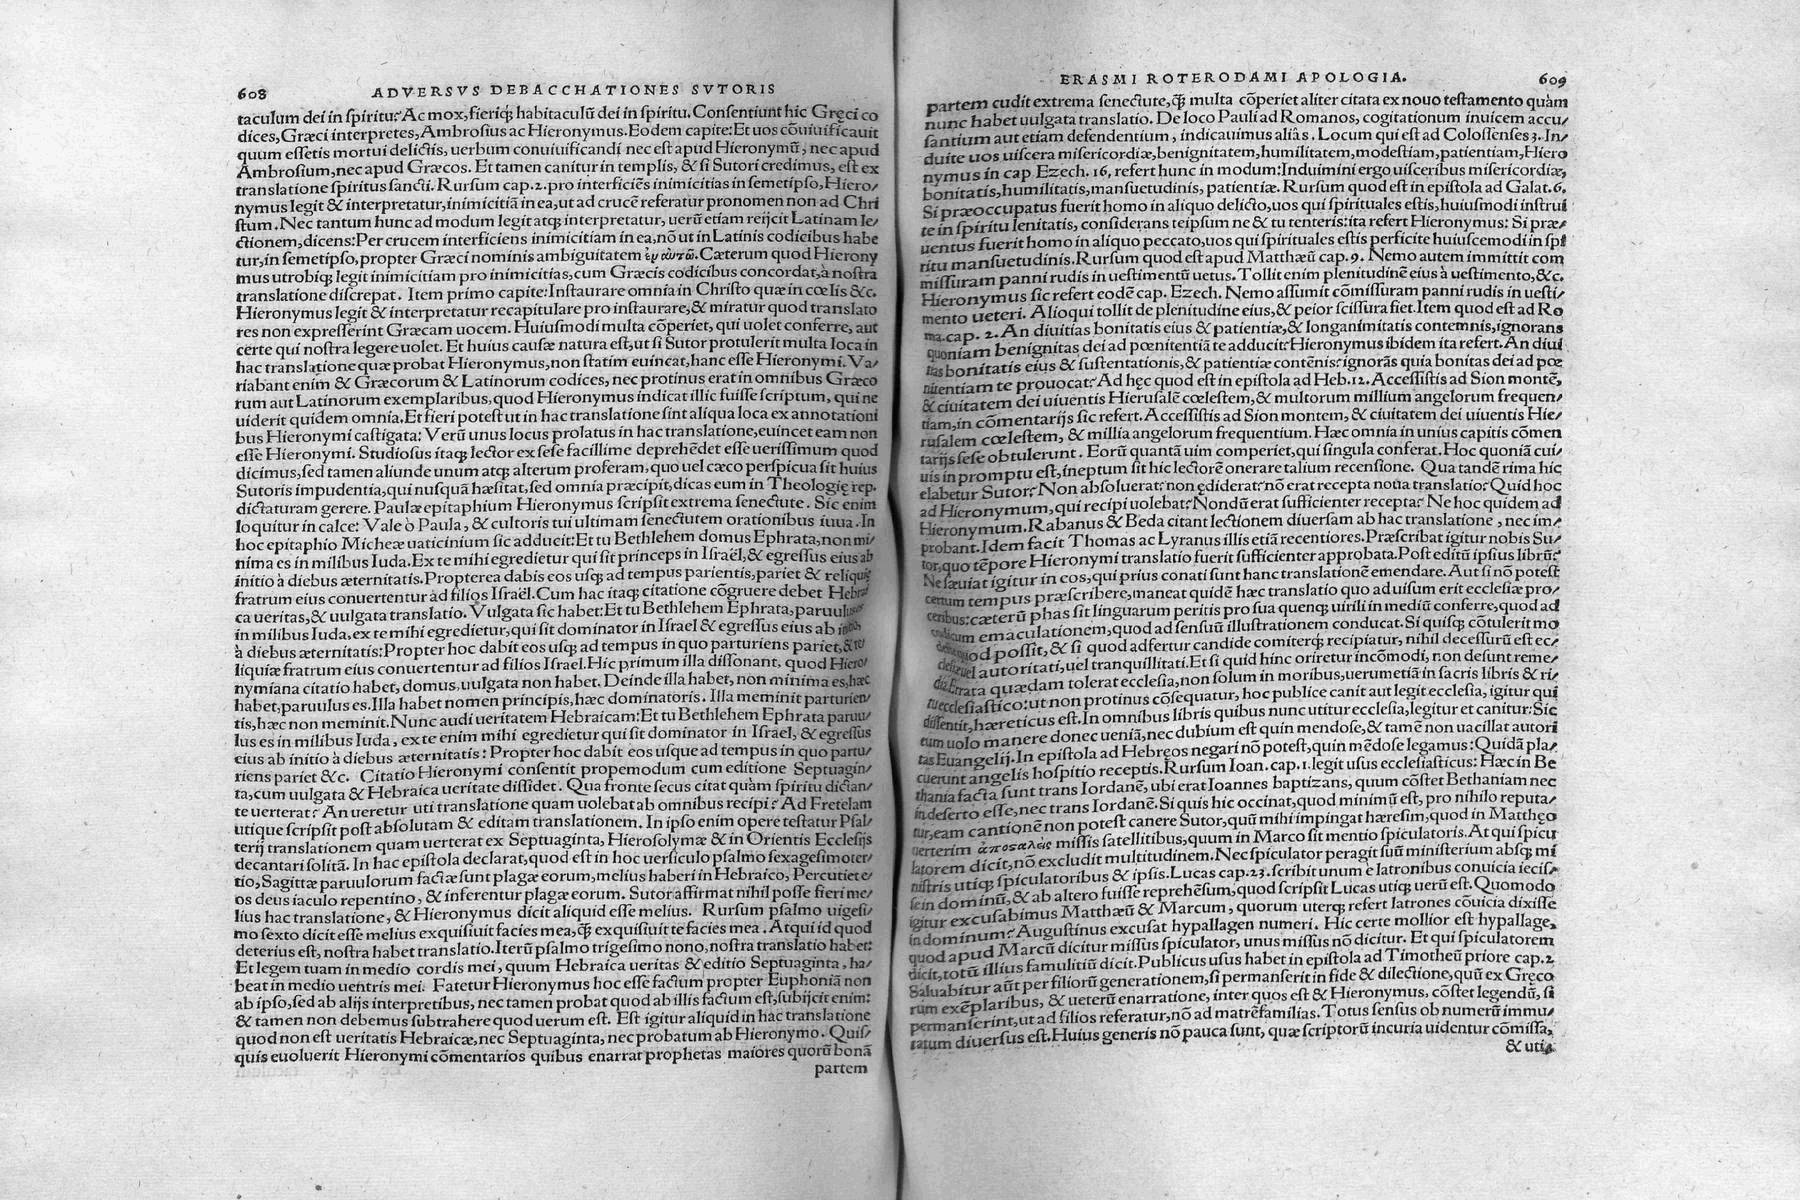 608 ADVERSVS DEBACCHATIONES SVTORIS
taculum dei in spiritu? Ac mox, fieriq́; habitaculũ dei in spiritu. Consentiunt hic Gręci co
dices, Græci interpretes, Ambrosius ac Hieronymus. Eodem capite: Et uos cõuiuificauit
quum essetis mortui delictis, uerbum conuiuificandi nec est apud Hieronymũ, nec apud
Ambrosium, nec apud Græcos. Et tamen canitur in templis, & si Sutori credimus, est ex
translatione spiritus sancti. Rursum cap. 2. pro interficiẽs inimicitias in semetipso, Hiero/
nymus legit & interpretatur, inimicitiã in ea, ut ad crucẽ referatur pronomen non ad Chri
stum. Nec tantum hunc ad modum legit atq; interpretatur, uerũ etiam reijcit Latinam le/
ctionem, dicens: Per crucem interficiens inimicitiam in ea, nõ ut in Latinis codicibus habe
tur, in semetipso, propter Græci nominis ambiguitatem ἐν αὐτῷ. Cæterum quod Hierony
mus utrobiq; legit inimicitiam pro inimicitias, cum Græcis codicibus concordat, à nostra
translatione discrepat. Item primo capite: Instaurare omnia in Christo quæ in cœlis &c.
Hieronymus legit & interpretatur recapitulare pro instaurare, & miratur quod translato
res non expresserint Græcam uocem. Huiusmodi multa cõperiet, qui uolet conferre, aut
certe qui nostra legere uolet. Et huius causæ natura est, ut si Sutor protulerit multa loca in
hac translatione quæ probat Hieronymus, non statim euincat, hanc esse Hieronymi. Va/
riabant enim & Græcorum & Latinorum codices, nec protinus erat in omnibus Græco
rum aut Latinorum exemplaribus, quod Hieronymus indicat illic fuisse scriptum, qui ne
uiderit quidem omnia. Et fieri potest ut in hac translatione sint aliqua loca ex annotationi
bus Hieronymi castigata: Verũ unus locus prolatus in hac translatione, euincet eam non
esse Hieronymi. Studiosus itaq; lector ex sese facillime deprehẽdet esse uerissimum quod
dicimus, sed tamen aliunde unum atq; alterum proferam, quo uel cæco perspicua sit huius
Sutoris impudentia, qui nusquã hæsitat, sed omnia præcipit, dicas eum in Theologię rep.
dictaturam gerere. Paulæ epitaphium Hieronymus scripsit extrema senectute. Sic enim
loquitur in calce: Vale ò Paula, & cultoris tui ultimam senectutem orationibus iuua. In
hoc epitaphio Micheæ uaticinium sic adducit: Et tu Bethlehem domus Ephrata, non mi/
nima es in milibus Iuda. Ex te mihi egredietur qui sit princeps in Israël, & egressus eius ab
initio à diebus æternitatis. Propterea dabis eos usq; ad tempus parientis, pariet & reliquię
fratrum eius conuertentur àd filios Israël. Cum hac itaq; citatione cõgruere debet Hebrai
ca ueritas, & uulgata translatio. Vulgata sic habet: Et tu Bethlehem Ephrata, paruulus es
in milibus Iuda, ex te mihi egredietur, qui sit dominator in Israel & egressus eius ab initio,
à diebus æternitatis: Propter hoc dabit eos usq; ad tempus in quo parturiens pariet, & re/
liquiæ fratrum eius conuertentur ad filios Israel. Hic primum illa dissonant, quod Hiero/
nymiana citatio habet, domus, uulgata non habet. Deinde illa habet, non minima es, hæc
habet, paruulus es. Illa habet nomen principis, hæc dominatoris. Illa meminit parturien/
tis, hæc non meminit. Nunc audi ueritatem Hebraicam: Et tu Bethlehem Ephrata paruu/
lus es in milibus Iuda, ex te enim mihi egredietur qui sit dominator in Israel, & egressus
eius ab initio à diebus æternitatis: Propter hoc dabit eos usque ad tempus in quo partu/
riens pariet &c. Citatio Hieronymi consentit propemodum cum editione Septuagin/
ta, cum uulgata & Hebraica ueritate dissidet. Qua fronte secus citat quàm spiritu dictan/
te uerterat? An ueretur uti translatione quam uolebat ab omnibus recipi? Ad Fretelam
utique scripsit post absolutam & editam translationem. In ipso enim opere testatur Psal/
terij translationem quam uerterat ex Septuaginta, Hierosolymæ & in Orientis Ecclesijs
decantari solitã. In hac epistola declarat, quod est in hoc uersiculo psalmo sexagesimoter/
tio, Sagittæ paruulorum factæ sunt plagæ eorum, melius haberi in Hebraico, Percutiet e/
os deus iaculo repentino, & inferentur plagæ eorum. Sutor affirmat nihil posse fieri me/
lius hac translatione, & Hieronymus dicit aliquid esse melius. Rursum psalmo uigesi/
mo sexto dicit esse melius exquisiuit facies mea, q̃ exquisiuit te facies mea. Atqui id quod
deterius est, nostra habet translatio. Iterũ psalmo trigesimo nono, nostra translatio habet:
Et legem tuam in medio cordis mei, quum Hebraica ueritas & editio Septuaginta, ha/
beat in medio uentris mei. Fatetur Hieronymus hoc esse factum propter Euphoniã non
ab ipso, sed ab alijs interpretibus, nec tamen probat quod ab illis factum est, subijcit enim:
& tamen non debemus subtrahere quod uerum est. Est igitur aliquid in hac translatione
quod non est ueritatis Hebraicæ, nec Septuaginta, nec probatum ab Hieronymo. Quis/
quis euoluerit Hieronymi cõmentarios quibus enarrat prophetas maiores quorũ bonã
partem
ERASMI ROTERODAMI APOLOGIA. 609
partem cudit extrema senectute, q̃ multa cõperiet aliter citata ex nouo testamento quàm
nunc habet uulgata translatio. De loco Pauli ad Romanos, cogitationum inuicem accu/
santium aut etiam defendentium, indicauimus aliâs. Locum qui est ad Colossenses 3. In/
duite uos uiscera misericordiæ, benignitatem, humilitatem, modestiam, patientiam, Hiero
nymus in cap Ezech. 16, refert hunc in modum: Induimini ergo uisceribus misericordiæ,
bonitatis, humilitatis, mansuetudinis, patientiæ. Rursum quod est in epistola ad Galat. 6.
Si præoccupatus fuerit homo in aliquo delicto, uos qui spirituales estis, huiusmodi instrui
te in spiritu lenitatis, considerans teipsum ne & tu tenteris: ita refert Hieronymus: Si præ/
uentus fuerit homo in aliquo peccato, uos qui spirituales estis perficite huiuscemodi in spi
ritu mansuetudinis. Rursum quod est apud Matthæũ cap. 9. Nemo autem immittit com
missuram panni rudis in uestimentũ uetus. Tollit enim plenitudinẽ eius à uestimento, &c.
Hieronymus sic refert eodẽ cap. Ezech. Nemo assumit cõmissuram panni rudis in uesti/
mento ueteri. Alioqui tollit de plenitudine eius, & peior scissura fiet. Item quod est ad Ro
ma. cap. 2. An diuitias bonitatis eius & patientiæ, & longanimitatis contemnis, ignorans
quoniam benignitas dei ad pœnitentiã te adducit? Hieronymus ibidem ita refert. An diui
tias bonitatis eius & sustentationis, & patientiæ contẽnis? ignorãs quia bonitas dei ad pœ
nitentiam te prouocat? Ad hęc quod est in epistola ad Heb. 12. Accessistis ad Sion montẽ,
& ciuitatem dei uiuentis Hierusalẽ cœlestem, & multorum millium angelorum frequen/
tiam, in cõmentarijs sic refert. Accessistis ad Sion montem, & ciuitatem dei uiuentis Hie/
rusalem cœlestem, & millia angelorum frequentium. Hæc omnia in unius capitis cõmen
tarijs sese obtulerunt. Eorũ quantã uim comperiet, qui singula conferat. Hoc quoniã cui/
uis in promptu est, ineptum sit hic lectorẽ onerare talium recensione. Qua tandẽ rima hic
elabetur Sutor? Non absoluerat? non ędiderat? nõ erat recepta noua translatio? Quid hoc
ad Hieronymum, qui recipi uolebat? Nondũ erat sufficienter recepta? Ne hoc quidem ad
Hieronymum. Rabanus & Beda citant lectionem diuersam ab hac translatione, nec im/
probant. Idem facit Thomas ac Lyranus illis etiã recentiores. Præscribat igitur nobis Su/
tor, quo tẽpore Hieronymi translatio fuerit sufficienter approbata. Post editũ ipsius librũ?
Ne sæuiat igitur in eos, qui prius conati sunt hanc translationẽ emendare. Aut si nõ potest
certum tempus præscribere, maneat quidẽ hæc translatio quo ad uisum erit ecclesiæ pro/
ceribus: cæterũ phas sit linguarum peritis pro sua quenq; uirili in mediũ conferre, quod ad
codicum emaculationem, quod ad sensuũ illustrationem conducat. Si quisq; cõtulerit mo
do quod possit, & si quod adfertur candide comiterq; recipiatur, nihil decessurũ est ec/
clesiæ uel autoritati, uel tranquillitati. Et si quid hinc oriretur incõmodi, non desunt reme/
dia. Errata quædam tolerat ecclesia, non solum in moribus, uerumetiã in sacris libris & ri/
tu ecclesiastico: ut non protinus cõsequatur, hoc publice canit aut legit ecclesia, igitur qui
dissentit, hæreticus est. In omnibus libris quibus nunc utitur ecclesia, legitur et canitur: Sic
eum uolo manere donec ueniã, nec dubium est quin mendose, & tamẽ non uacillat autori
tas Euangelij. In epistola ad Hebręos negari nõ potest, quin mẽdose legamus: Quidã pla/
cuerunt angelis hospitio receptis. Rursum Ioan. cap. 1. legit usus ecclesiasticus: Hæc in Be
thania facta sunt trans Iordanẽ, ubi erat Ioannes baptizans, quum cõstet Bethaniam nec
in deserto esse, nec trans Iordanẽ. Si quis hic occinat, quod minimũ est, pro nihilo reputa/
tur, eam cantionẽ non potest canere Sutor, quũ mihi impingat hæresim, quod in Matthęo
uerterim ἀποσαλεὶς missis satellitibus, quum in Marco sit mentio spiculatoris. At qui spicu
latorem dicit, nõ excludit multitudinem. Nec spiculator peragit suũ ministerium absq; mi
nistris utiq; spiculatoribus & ipsis. Lucas cap. 23. scribit unum e latronibus conuicia iecis/
se in dominũ, & ab altero fuisse reprehẽsum, quod scripsit Lucas utiq; uerũ est. Quomodo
igitur excusabimus Matthæũ & Marcum, quorum uterq; refert latrones cõuicia dixisse
in dominum? Augustinus excusat hypallagen numeri. Hic certe mollior est hypallage,
quod apud Marcũ dicitur missus spiculator, unus missus nõ dicitur. Et qui spiculatorem
dicit, totũ illius famulitiũ dicit. Publicus usus habet in epistola ad Timotheũ priore cap. 2.
Saluabitur aũt per filiorũ generationem, si permanserit in fide & dilectione, quũ ex Gręco
rum exẽplaribus, & ueterũ enarratione, inter quos est & Hieronymus, cõstet legendũ, si
permanserint, ut ad filios referatur, nõ ad matrẽfamilias. Totus sensus ob numerũ immu/
tatum diuersus est. Huius generis nõ pauca sunt, quæ scriptorũ incuria uidentur cõmissa,
& utiq;